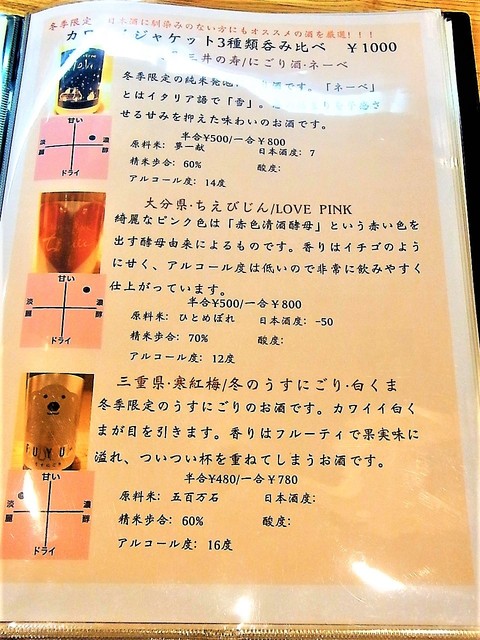 冬季限定 日本酒に馴染みのない方にもオススメの酒を厳選!!!
カワイイジャケット3種類呑み比べ ¥1000
三井の寿/にごり酒・ネーベ
冬季限定の純米発泡 酒です。「ネーベ」
とはイタリア語で「雪」。
せる甘みを抑えた味わいのお酒です。
半合¥500/一合¥800
原料米: 夢一献 日本酒度: 7
精米歩合: 60% 酸度:
アルコール度: 14度
甘い
淡麗
濃醇
ドライ
大分県・ちえびじん/LOVE PINK
綺麗なピンク色は「赤色清酒酵母」という赤い色を
出す酵母由来によるものです。香りはイチゴのよう
に甘く、アルコール度は低いので非常に飲みやすく
仕上がっています。
半合¥500/一合¥800
原料米: ひとめぼれ 日本酒度: -50
精米歩合: 70% 酸度:
アルコール度: 12度
甘い
淡麗
濃醇
ドライ
三重県・寒紅梅/冬のうすにごり・白くま
冬季限定のうすにごりのお酒です。カワイイ白く
まが目を引きます。香りはフルーティで果実味に
溢れ、ついつい杯を重ねてしまうお酒です。
半合¥480/一合¥780
原料米: 五百万石 日本酒度:
精米歩合: 60% 酸度:
アルコール度: 16度
FUYU
甘い
淡麗
濃醇
ドライ